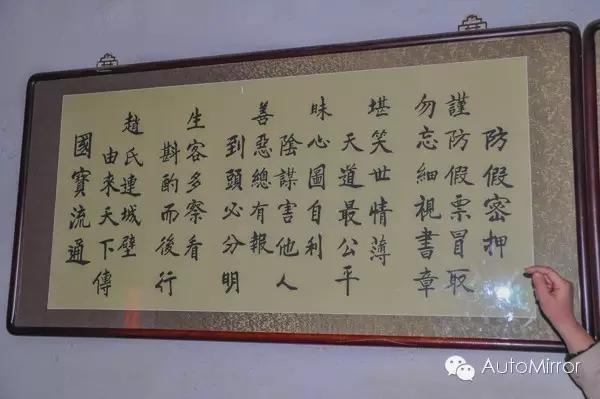 防假密押
謹防假票冒取
勿忘細視書章
堪笑世情薄
天道最公平
昧心圖自利
陰謀害他人
善惡總有報
到頭必分明
生客多察看
斟酌而後行
趙氏連城璧
由來天下傳
國寶流通
AutoMirror